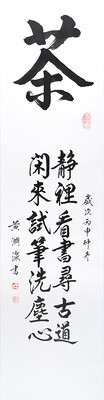 茶
歲次丙申仲冬
靜裡看書尋古道
閑來試筆洗塵心
黃淵深書